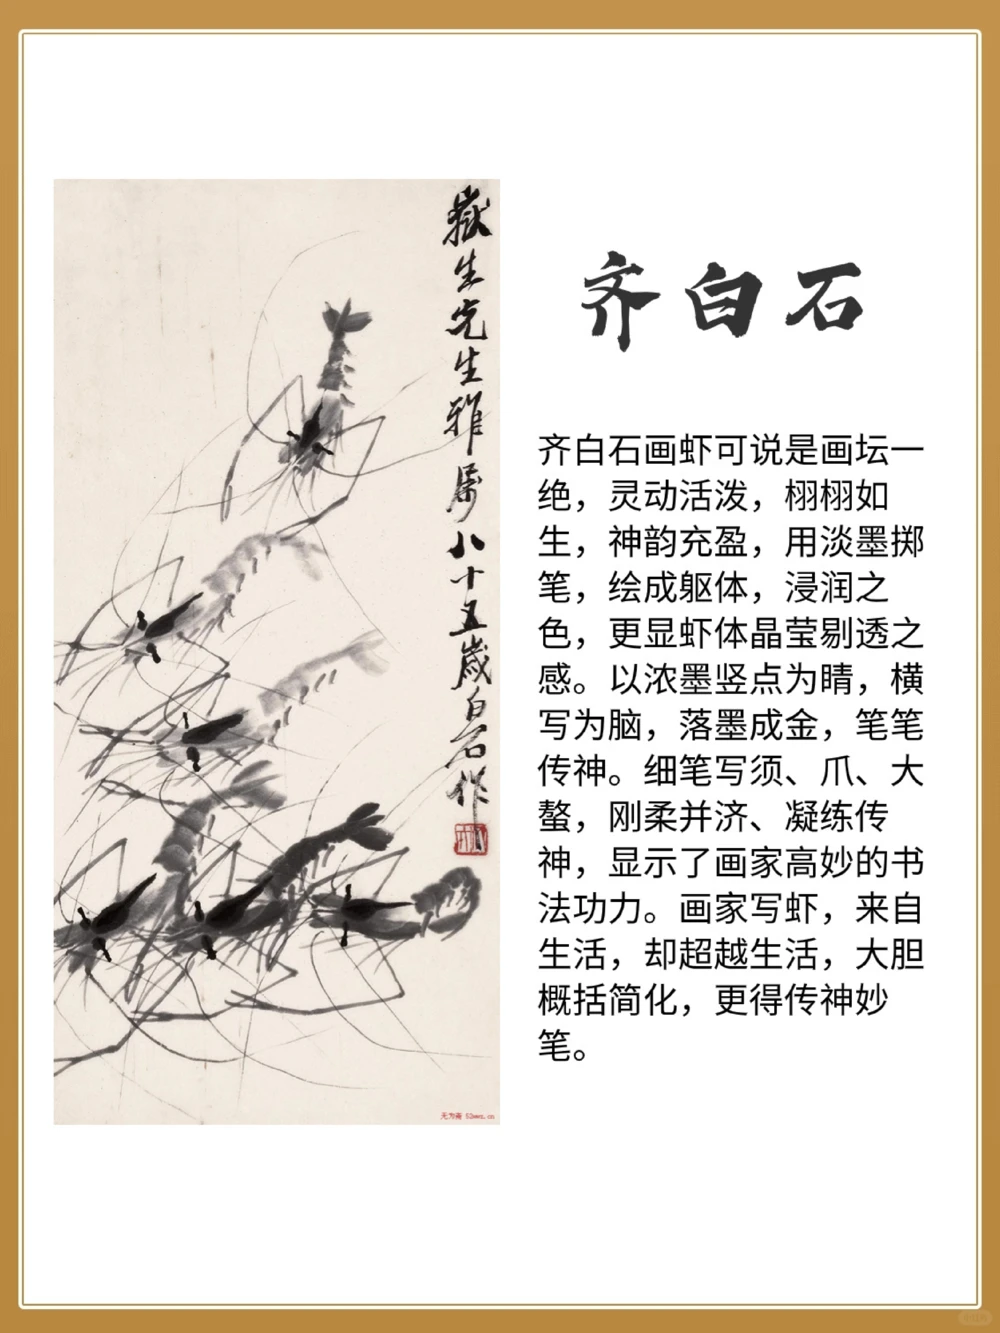 嶽生先生雅属八十五歲白石作
无为斋 52wwz.cn
齐白石
齐白石画虾可说是画坛一
绝，灵动活泼，栩栩如
生，神韵充盈，用淡墨掷
笔，绘成躯体，浸润之
色，更显虾体晶莹剔透之
感。以浓墨竖点为睛，横
写为脑，落墨成金，笔笔
传神。细笔写须、爪、大
螯，刚柔并济、凝练传
神，显示了画家高妙的书
法功力。画家写虾，来自
生活，却超越生活，大胆
概括简化，更得传神妙
笔。